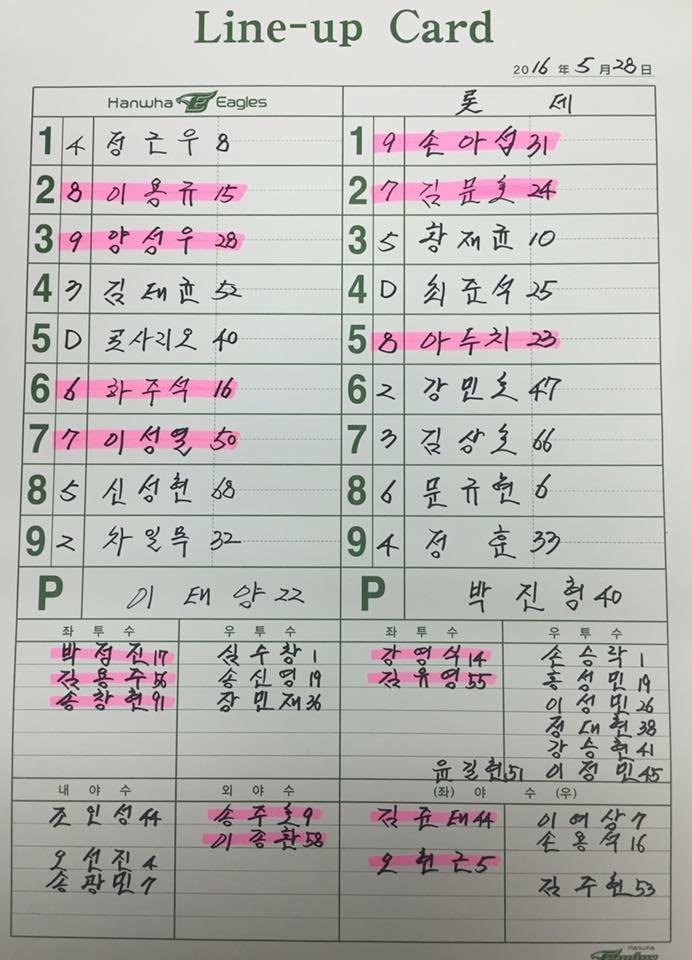 Line-up Card
2016年 5月 28日
Hanwha Eagles 롯데
1 4 정근우 8 1 9 손아섭 31
2 8 이용규 15 2 7 김문호 24
3 9 양성우 28 3 5 황재균 10
4 3 김태균 52 4 D 최준석 25
5 D 로사리오 40 5 8 아두치 23
6 6 하주석 16 6 2 강민호 47
7 7 이성열 50 7 3 김상호 66
8 5 신성현 68 8 6 문규현 6
9 2 차일목 32 9 4 정훈 33
P 이태양 22 P 박진형 40
좌투수 우투수 좌투수 우투수
박정진 17 심수창 1 강영식 14 손승락 1
김용주 56 송신영 19 김유영 55 홍성민 19
송창현 91 장민재 36 이성민 26
정대현 38
강승현 41
윤길현 51 이정민 45
내야수 외야수 (좌) 야수 (우)
조인성 44 송주호 9 김준태 44 이여상 7
이종환 58 손용석 16
오선진 4 오현근 5
송광민 7 김주현 53
Hanwha
Eagles